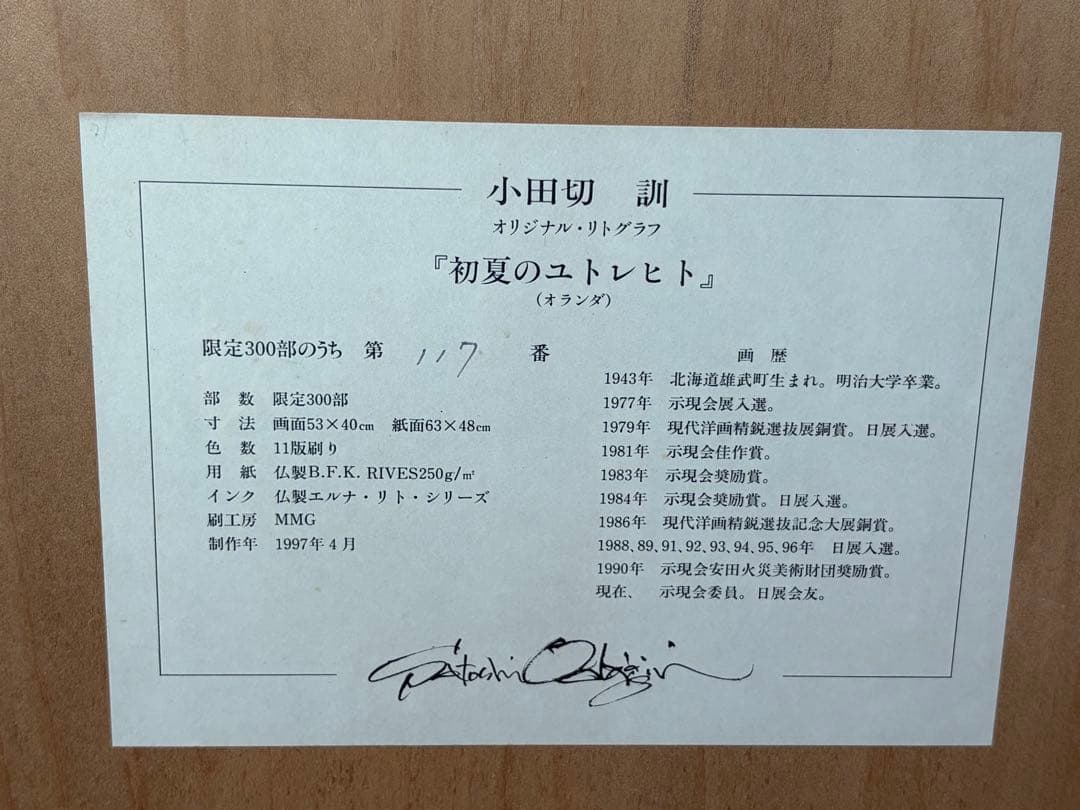 小田切 訓
オリジナル・リトグラフ
『初夏のユトレヒト』
(オランダ)
限定300部のうち 第 117 番
部 数 限定300部
寸 法 画面53×40㎝ 紙面63×48㎝
色 数 11版刷り
用 紙 仏製B.F.K. RIVES250g/㎡
インク 仏製エルナ・リト・シリーズ
刷工房 MMG
制作年 1997年4月
画 歴
1943年 北海道雄武町生まれ。明治大学卒業。
1977年 示現会展入選。
1979年 現代洋画精鋭選抜展銅賞。日展入選。
1981年 示現会佳作賞。
1983年 示現会奨励賞。
1984年 示現会奨励賞。日展入選。
1986年 現代洋画精鋭選抜記念大展銅賞。
1988、89、91、92、93、94、95、96年 日展入選。
1990年 示現会安田火災美術財団奨励賞。
現在、 示現会委員。日展会友。